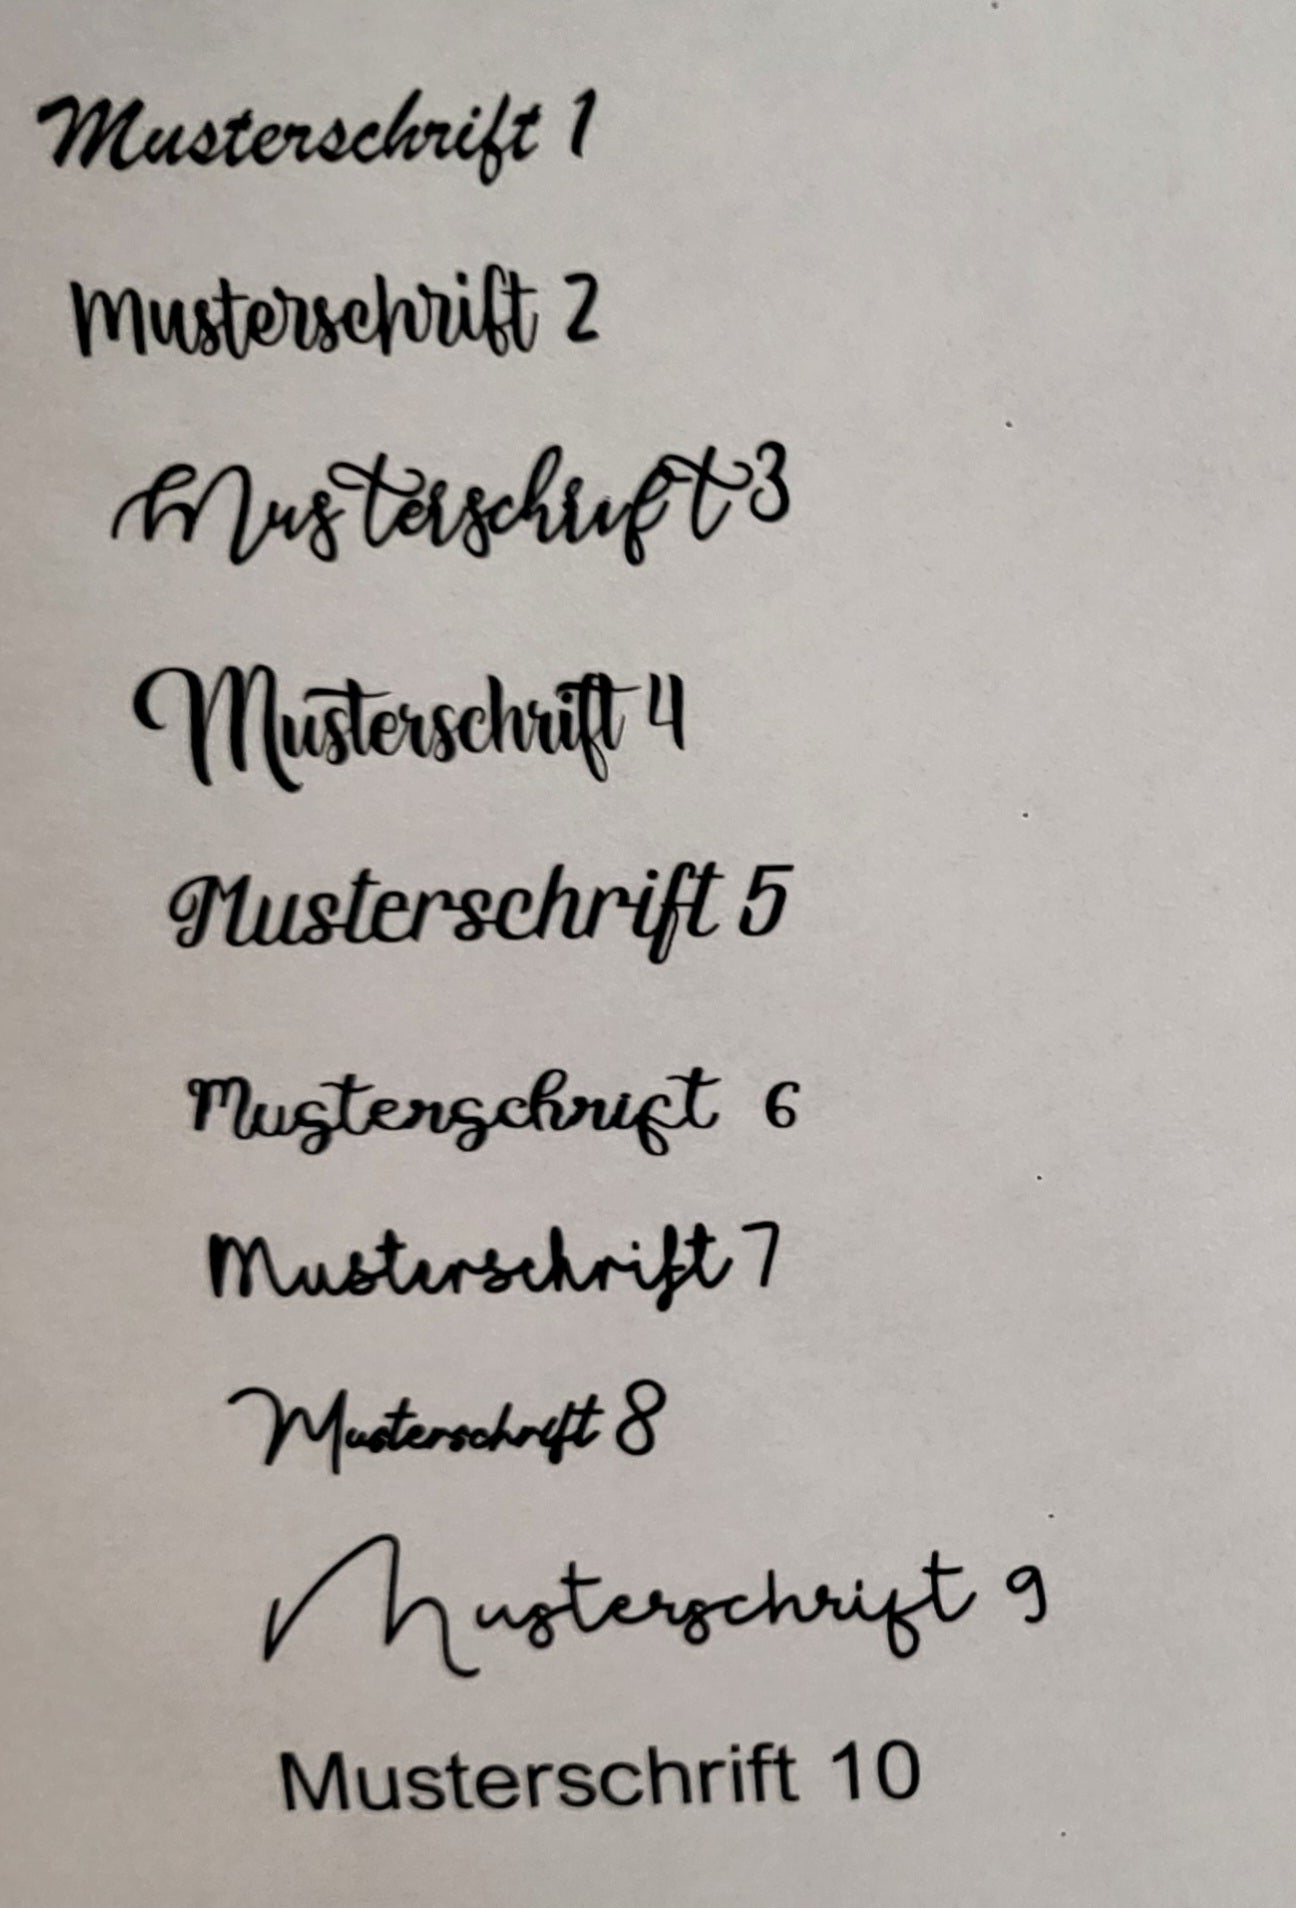 Musterschrift 1
Musterschrift 2
Musterschrift 3
Musterschrift 4
Musterschrift 5
Musterschrift 6
Musterschrift 7
Musterschrift 8
Musterschrift 9
Musterschrift 10